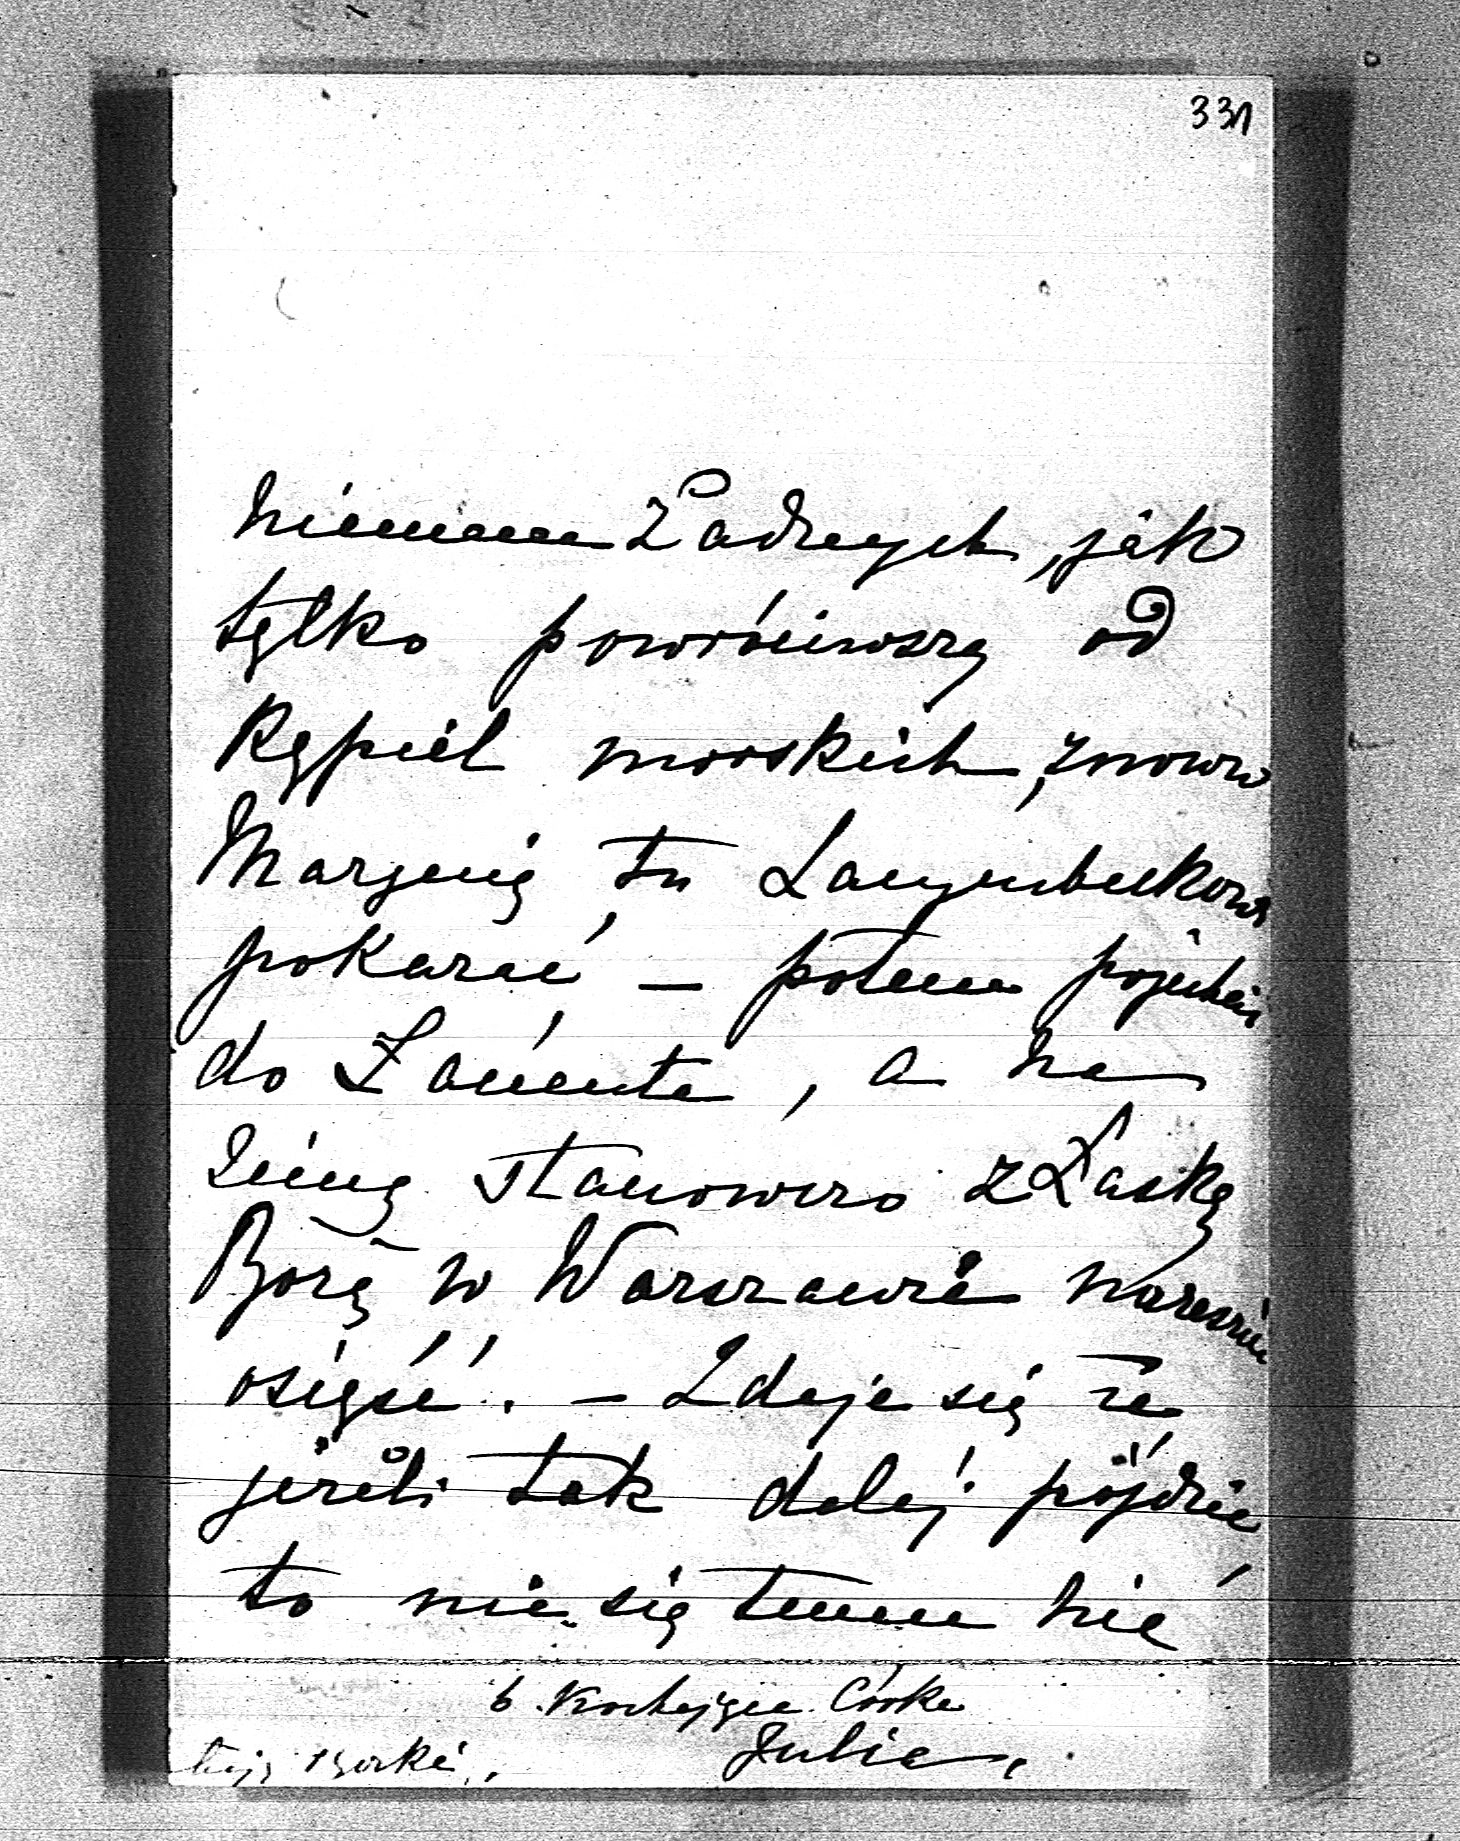 331
Niemam Żadnych, jak
tylko powróciwszy od
Kąpiel morskich, znowu
Marynię, tu Langenbeckowi
pokazać, – potem pojechać
do Łańcuta, a na
Zimę stanowczo z Łaską
Bożą w Warszawie nareszcie
osiąść. – Zdaje się że
jeżeli tak daléj pójdzie
to nic się temu nie
b. Kochająca Córka
Julia.